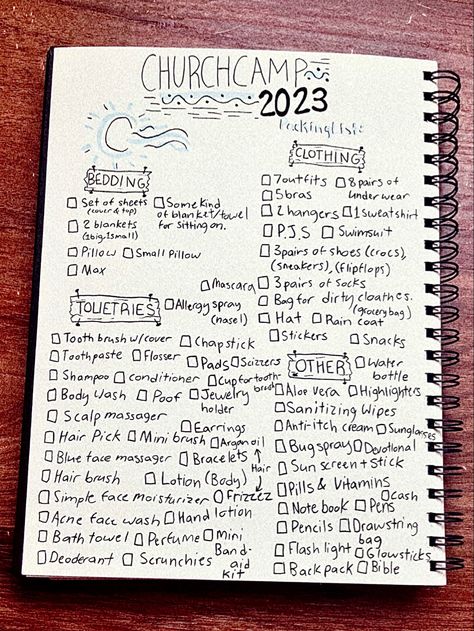 CHURCHCAMP
2023
Packinglist:
BEDDING
Set of sheets
(cover & top)
Some kind
of blanket/towel
for sitting on.
2 blankets
(1 big, 1 small)
Pillow
Small pillow
Max
CLOTHING
7 outfits
8 pairs of
underwear
5 bras
2 hangers
1 sweatshirt
P.J.S
Swimsuit
3 pairs of shoes (crocs),
(sneakers), (flipflops)
3 pairs of socks
Bag for dirty cloathes.
(grocery bag)
Hat
Rain coat
Stickers
Snacks
TOLIETRIES
Mascara
Allergy spray
(nasel)
Tooth brush w/cover
Chapstick
Toothpaste
Flosser
Pads
Scizzers
Shampoo
conditioner
Cup for tooth-
brush
Body wash
Poof
Jewelry
holder
Scalp massager
Earrings
Hair Pick
Mini brush
Argan oil
Blue face massager
Bracelets
Hair
Hair brush
Lotion (Body)
Simple face moisturizer
Frizzez
Acne face wash
Hand lotion
Bath towel
Perfume
Mini
Band-
aid
kit
Deoderant
Scrunchies
OTHER
Water
bottle
Aloe vera
Highlighters
Sanitizing Wipes
Anti-itch cream
Sunglasses
Bug spray
Devotional
Sun screen + stick
Pills & Vitamins
Cash
Note book
Pens
Pencils
Drawstring
bag
Flash light
Glowsticks
Backpack
Bible